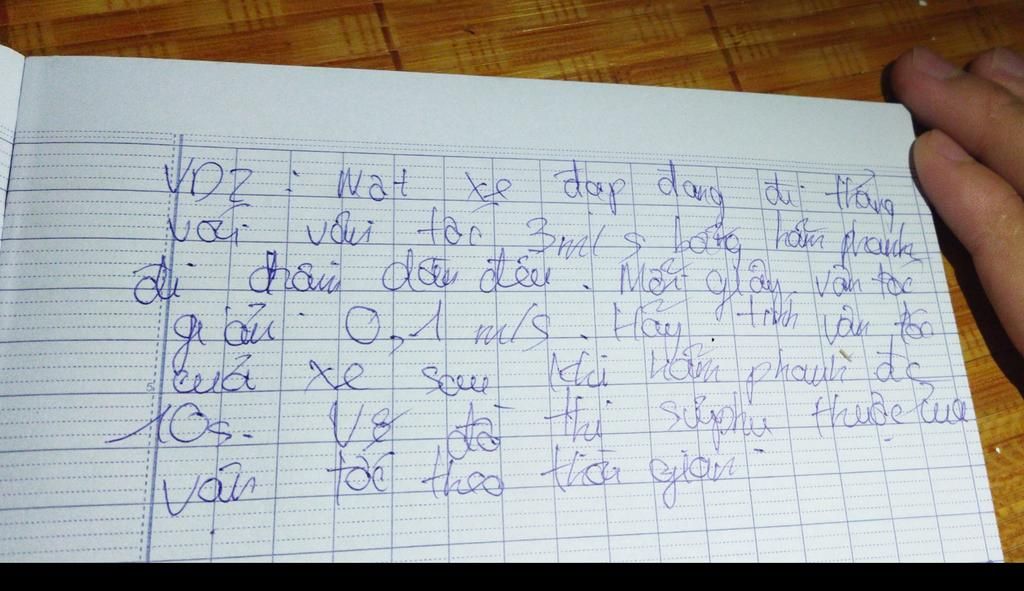 VD2 : Một xe đạp đang đi thẳng
với vận tốc 3m/s bỗng hãm phanh
đi chậm dần đều. Mỗi giây vận tốc
giảm 0,1 m/s. Hãy tính vận tốc
của xe sau khi hãm phanh đc
10s. Vẽ đồ thị sự phụ thuộc của
vận tốc theo thời gian